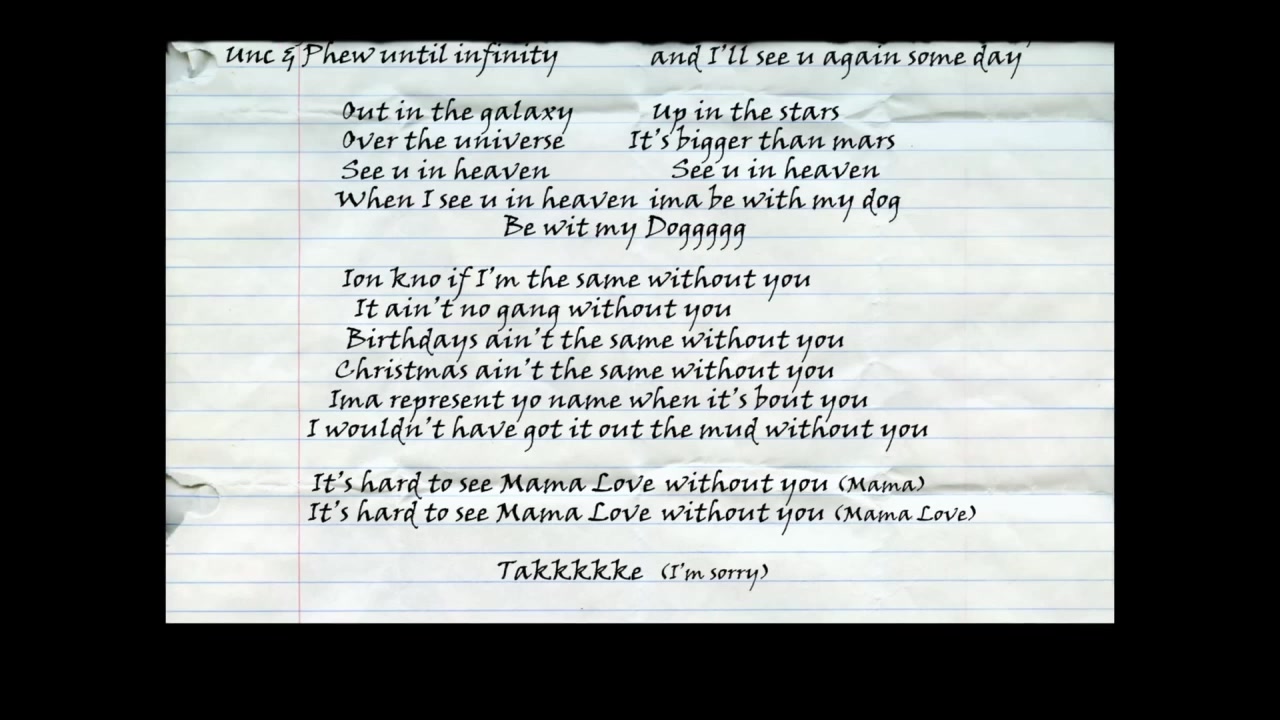 Unc & Phew until infinity and I'll see u again some day'
Out in the galaxy Up in the stars
Over the universe It's bigger than mars
See u in heaven See u in heaven
When I see u in heaven ima be with my dog
Be wit my Doggggg
Ion kno if I'm the same without you
It ain't no gang without you
Birthdays ain't the same without you
Christmas ain't the same without you
Ima represent yo name when it's bout you
I wouldn't have got it out the mud without you
It's hard to see Mama Love without you (Mama)
It's hard to see Mama Love without you (Mama Love)
Takkkkke (I'm sorry)